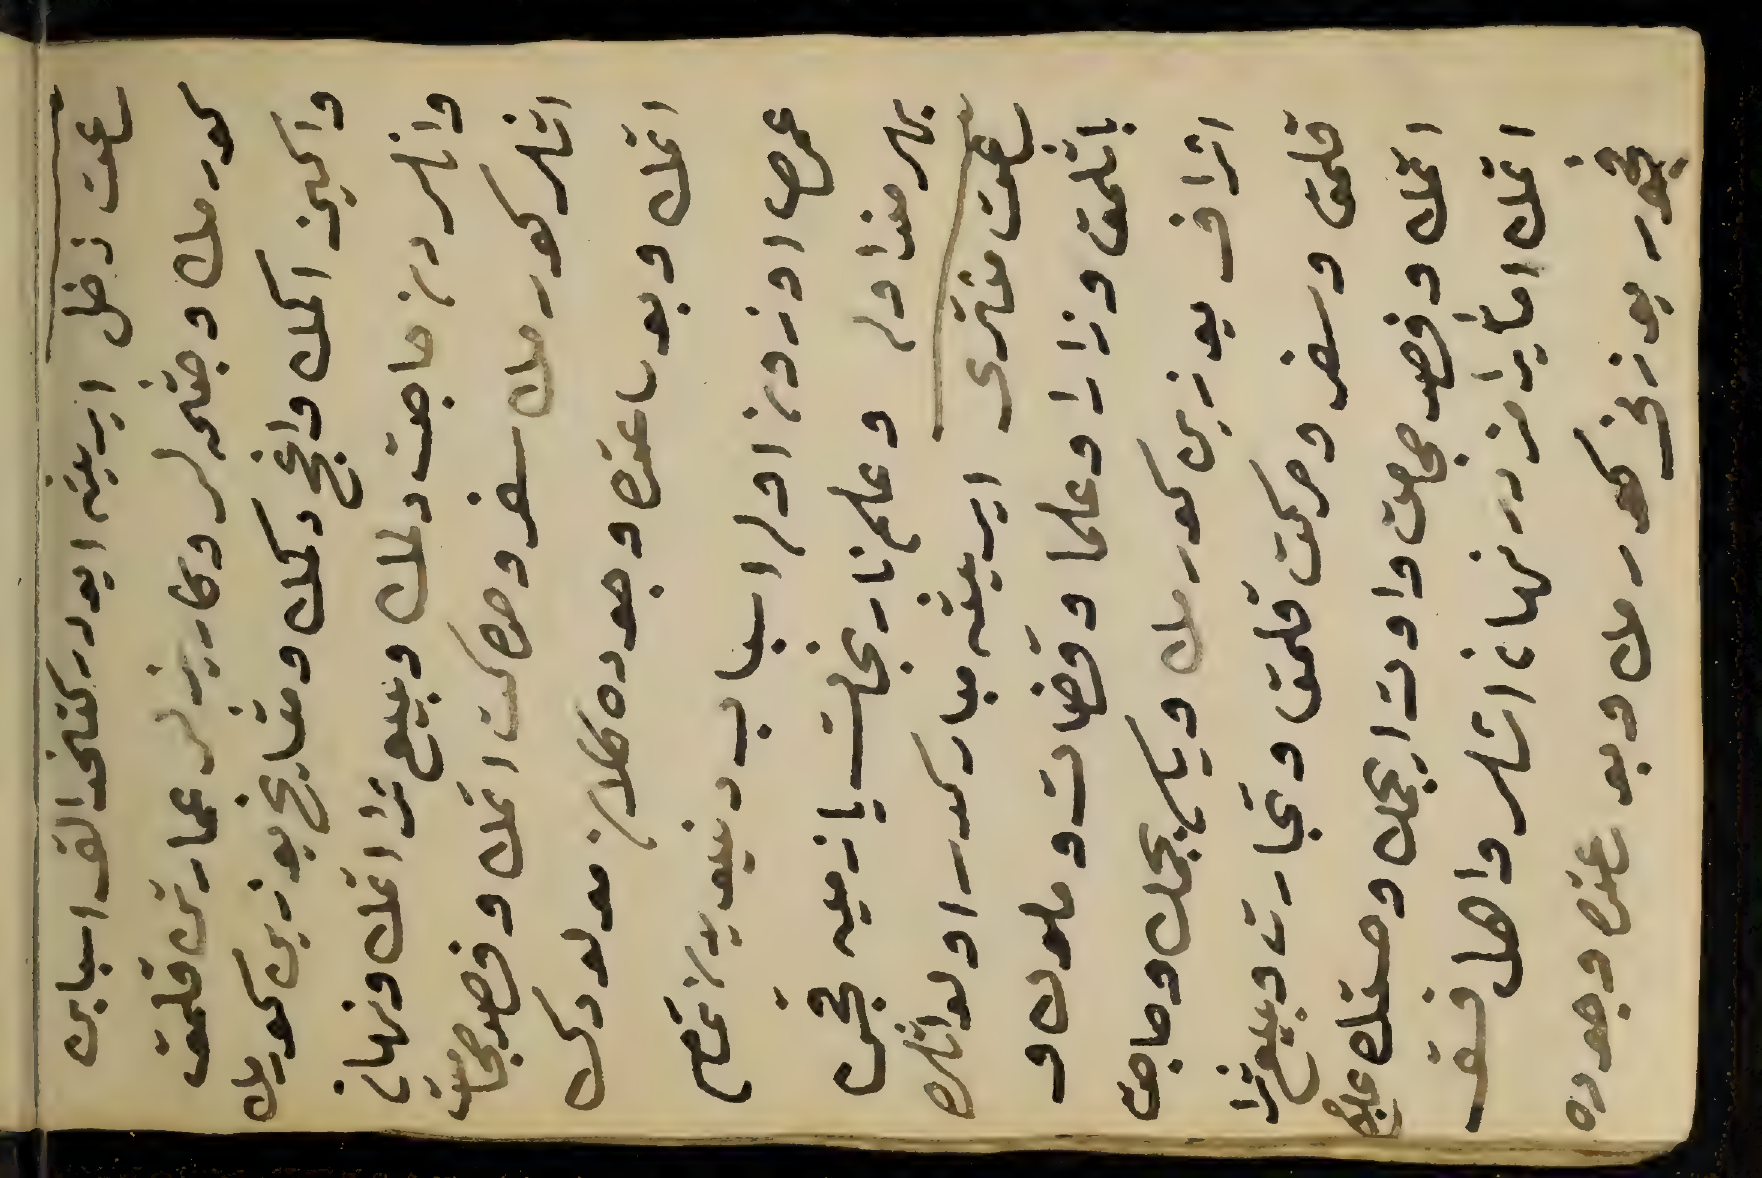 ساعت زحل ايرينته ايودر كتخدالق اسبابن
كورمك و جفتجيلر وكاريزلر عمارتن قلمق
واكين اكمك واغج دكمك ومشايخ يوزين كورمك
وانلردن حاجت دلمك وبيع شرا اتمك ونهان
اتلر كورمك سفر وحركت اتمك و فصد حجامت
اتمك و بو ساعتده وجوده كلان مولودك
عمرى اوزون اولر اسباب دنيويدن تمام
بهرمند اولر وعلم نارنجات يازميه يخشى
ساعت مشترى ايرينته مباركدر اولو ايشلره
باشلمق وزرا وعلما وقضات وملوك و
اشراف يوزين كورمك ويكى بچمك وحاجت
قلمق وسفر وحركت قلمق وتجارت وبيع شرا
اتمك وفصد حجامت واوت ايچمك ومسئله علم
اتمك اما يرامز درنهان اشلر واهل فسق
فجور يوزنى كورمك وبو ساعتده وجوده